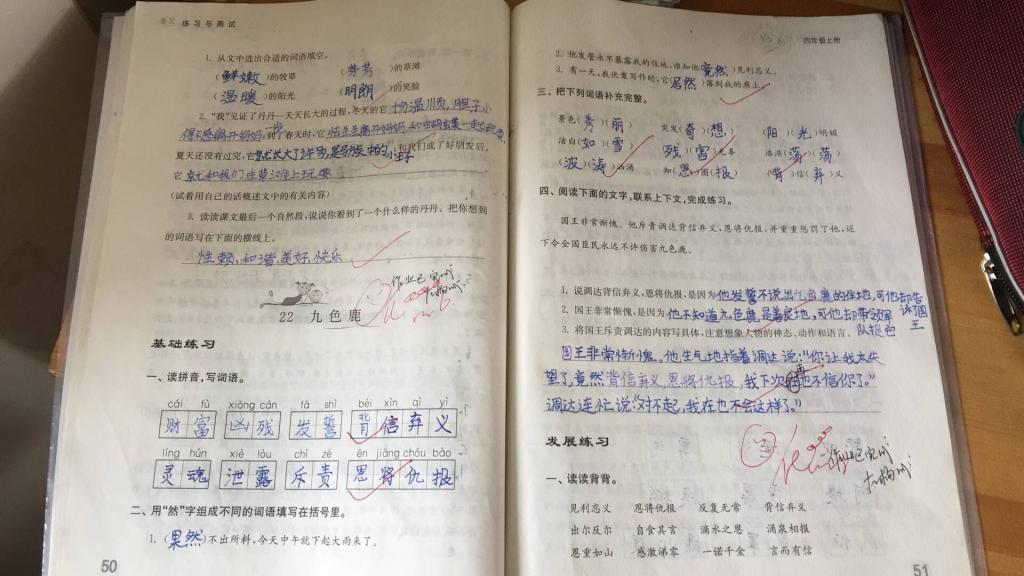 练习与测试
1. 从文中选出合适的词语填空。
（鲜嫩）的牧草 （芳芳）的草滩
（温暖）的阳光 （明朗）的笑脸
2. “我”见证了丹丹一天天长大的过程，冬天的它十分温顺，胆子小
得不愿离开妈妈，到了春天时，它
夏天还没有过完，它就长大了许多，是马族中的小王子，和我们成了好朋友后，
它
（试着用自己的话概述文中的有关内容）
3. 读读课文最后一个自然段，说说你看到了一个什么样的丹丹。把你想到
的词语写在下面的横线上。
和谐、美好、快乐
22 九色鹿
基础练习
一、读拼音，写词语。
cái fù xiōng cán fā shì bèi xìn qì yì
财富 凶残 发誓 背信弃义
líng hún xiè lòu chì zé ēn jiāng chóu bào
灵魂 泄露 斥责 恩将仇报
二、用“然”字组成不同的词语填写在括号里。
1.（果然）不出所料，今天中午就下起大雨来了。
50
四年级上册
2. 他发誓永不暴露我的住地，谁知他（竟然）见利忘义。
3. 有一天，我伏案写作时，它（居然）落到我的肩上。
三、把下列词语补充完整。
景色（秀）（丽） 突发（奇）（想） （阳）（光）明媚
洁白（如）（雪） （残）（害）无辜 浩浩（荡）（荡）
（波）（涛）汹涌 知（恩）图（报） （背）信（弃）义
四、阅读下面的文字，联系上下文，完成练习。
国王非常惭愧，他斥责调达背信弃义，恩将仇报，并重重惩罚了他，还
下令全国臣民永远不许伤害九色鹿。
1. 说调达背信弃义，恩将仇报，是因为他发誓不说出九色鹿的住地，可他却告诉国王
2. 国王非常惭愧，是因为他不知道九色鹿是善良地，可他却带领军队捉它
3. 将国王斥责调达的内容写具体，注意想象人物的神态、动作和语言。
国王非常惭愧。他生气地指着调达说：“你让我太失
望了，竟然背信弃义，恩将仇报，我下次再也不信你了。”
调达连忙说：“对不起，我在也不会这样了。”
发展练习
一、读读背背。
见利忘义 恩将仇报 反复无常 背信弃义
出尔反尔 自食其言 滴水之恩 涌泉相报
恩重如山 感激涕零 一诺千金 言而有信
51